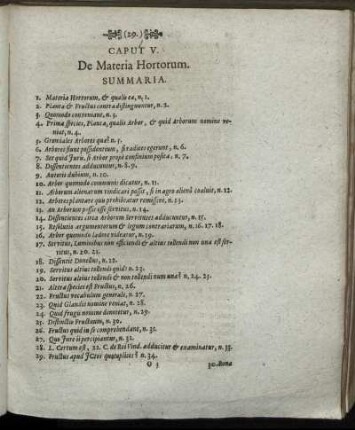 (29.)
CAPUT V.
De Materia Hortorum.
SUMMARIA.
1. Materia Hortorum, & qualis ea, n. 1.
2. Planta & Fructus contradistinguuntur, n. 2.
3. Quomodo conveniant, n. 3.
4. Prima species, Planta, qualis Arbor, & quid Arborum nomine ve-
niat, n. 4.
5. Gremiales Arbores quæ? n. 5.
6. Arbores sunt possidentium, si radices egerunt, n. 6.
7. Set quid Juris, si Arbor prope confinium posita, n. 7.
8. Dissentientes adducuntur, n. 8. 9.
9. Autoris dubium, n. 10.
10. Arbor quomodo communis dicatur, n. 11.
11. Arborem alienarum vindicari possit, si in agro alienô coaluit, n. 12.
12. Arbores plantare quis prohibicatur remissive, n. 13.
13. An Arborum posse esse servitus, n. 14.
14. Dissentientes circa Arborem Servitutes adducuntur, n. 15.
15. Resolutio argumentorum & legum contrariarum, n. 16. 17. 18.
16. Arbor quomodo ludere videatur, n. 19.
17. Servitus, Luminibus non officiendi & altius tollendi non una est ser-
vitus, n. 20. 21.
18. Dissentit Donellus, n. 22.
19. Servitus altius tollendi quid? n. 23.
20. Servitus altius tollendi & non tollendi num una? n. 24. 25.
21. Altera species est Fructus, n. 26.
22. Fructus vocabulum generale, n. 27.
23. Quid Glandis nomine veniat, n. 28.
24. Quid frugis nomine denotetur, n. 29.
25. Distinctio Fructuum, n. 30.
26. Fructus quid in se comprehendant, n. 31.
27. Quo Jure ii percipiantur, n. 32.
28. L. Certum est, 22. C. de Rei Vind. adducitur & examinatur, n. 33.
29. Fructus apud JCtos quotuplices? n. 34.
O 3
30. Bona